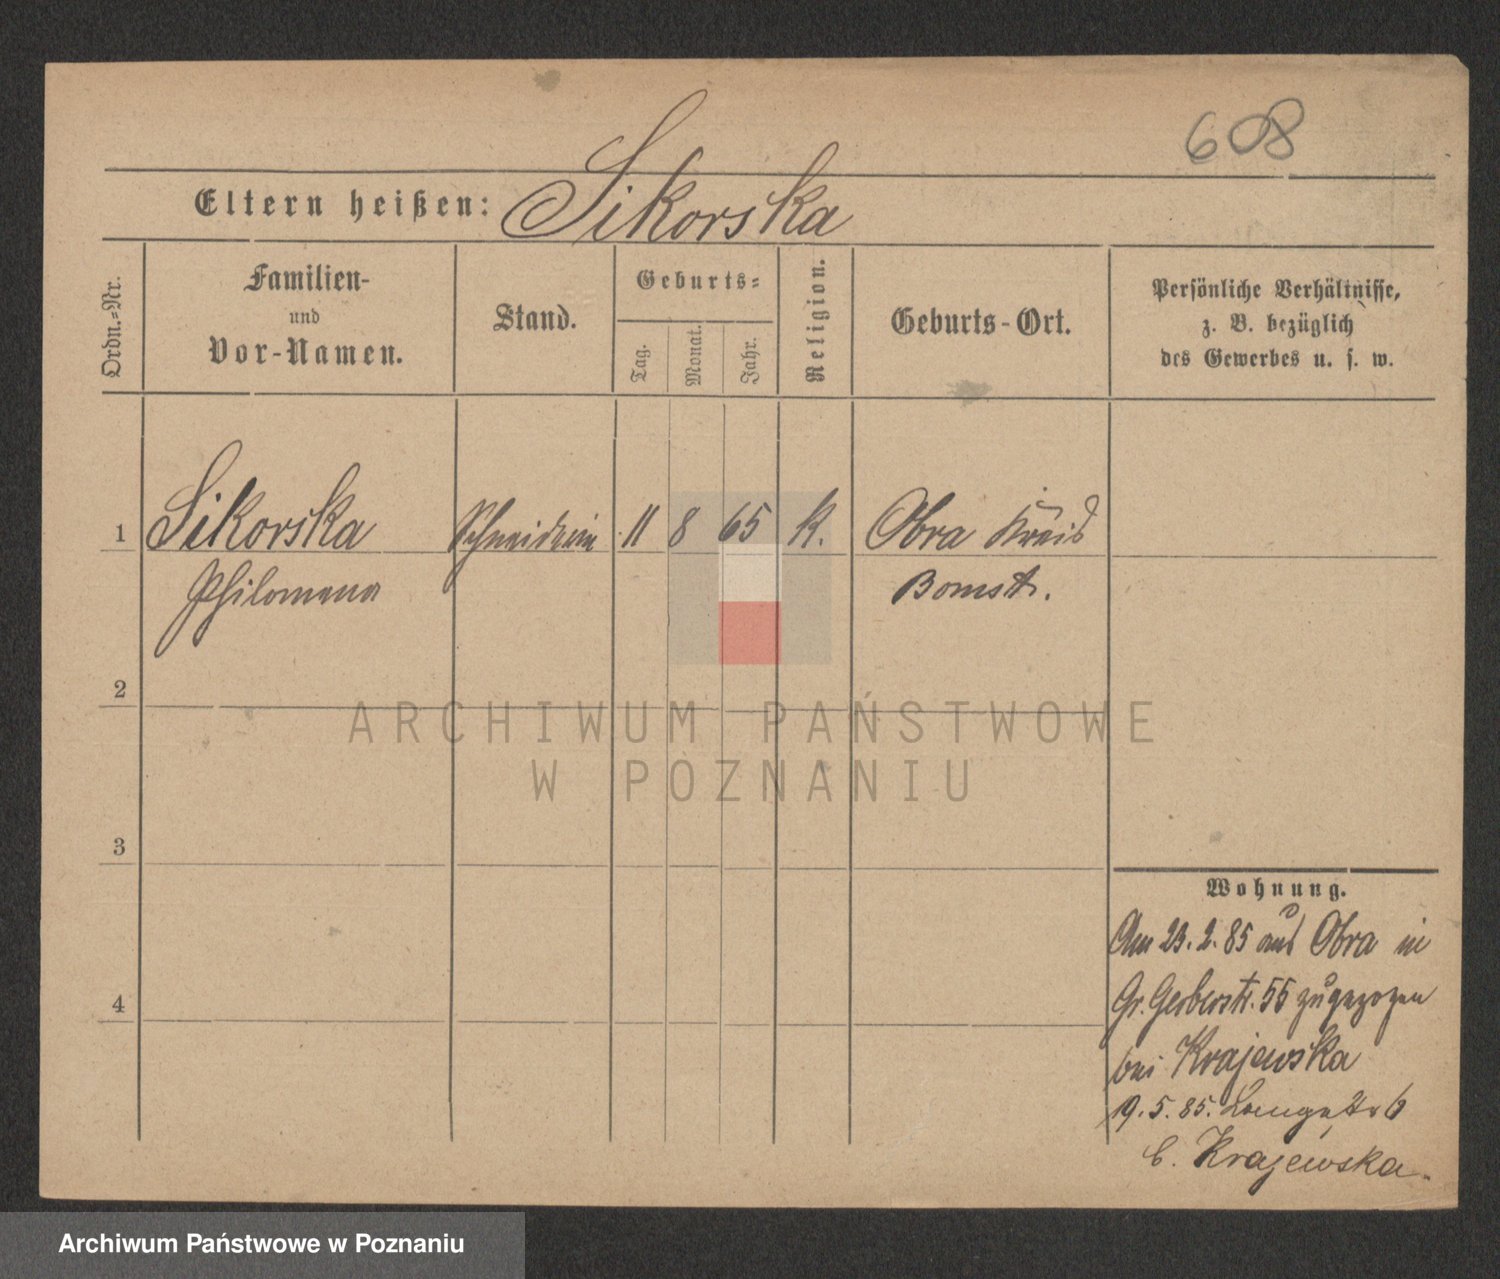 608
Eltern heißen: Sikorska
Ordn.-Nr.
Familien-
und
Vor-Namen.
Stand.
Geburts-
Tag.
Monat.
Jahr.
Religion.
Geburts-Ort.
Persönliche Verhältnisse,
z. B. bezüglich
des Gewerbes u. s. w.
1 Sikorska Schneiderin 11 8 65 K. Obra Kreis
Philomena Bomst.
2
3
4
ARCHIWUM PAŃSTWOWE
W POZNANIU
Wohnung.
Am 23. 2. 85 aus Obra in
Gr. Gerberstr. 55 zugezogen
bei Krajewska
19. 5. 85. Langestr 6
b. Krajewska.
Archiwum Państwowe w Poznaniu